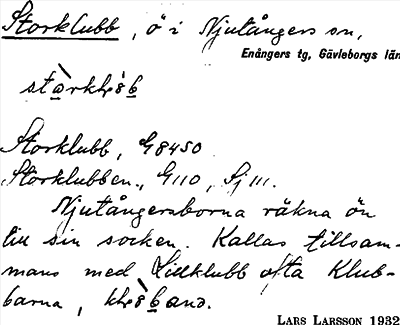 Storklubb, ö i Njutångers sn,
Enångers tg, Gävleborgs län
Storklubb, G8450
Storklubben, G110, Sj 111.
Njutångersborna räkna ön
till sin socken. Kallas tillsam-
mans med Lillklubb ofta Klub-
barna,
LARS LARSSON 1932